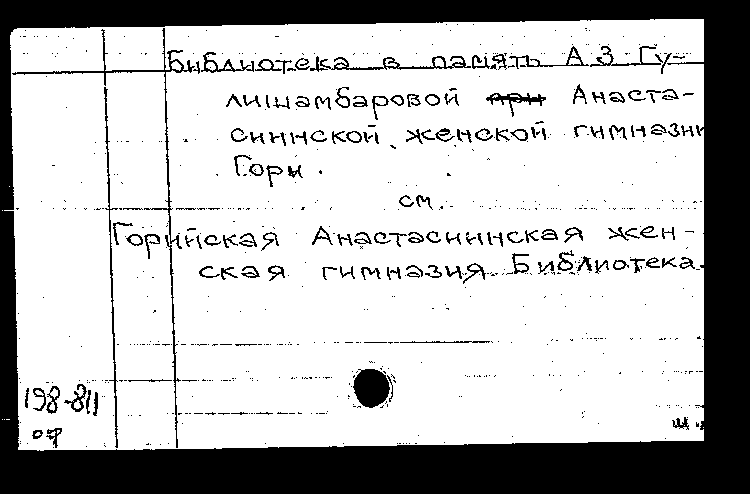 Библиотека в память А З Гу-
лишамбаровой при Анаста-
сиинской женской гимназии
Гори.
см.
Горийская Анастасиинская жен-
ская гимназия. Библиотека.
198-811